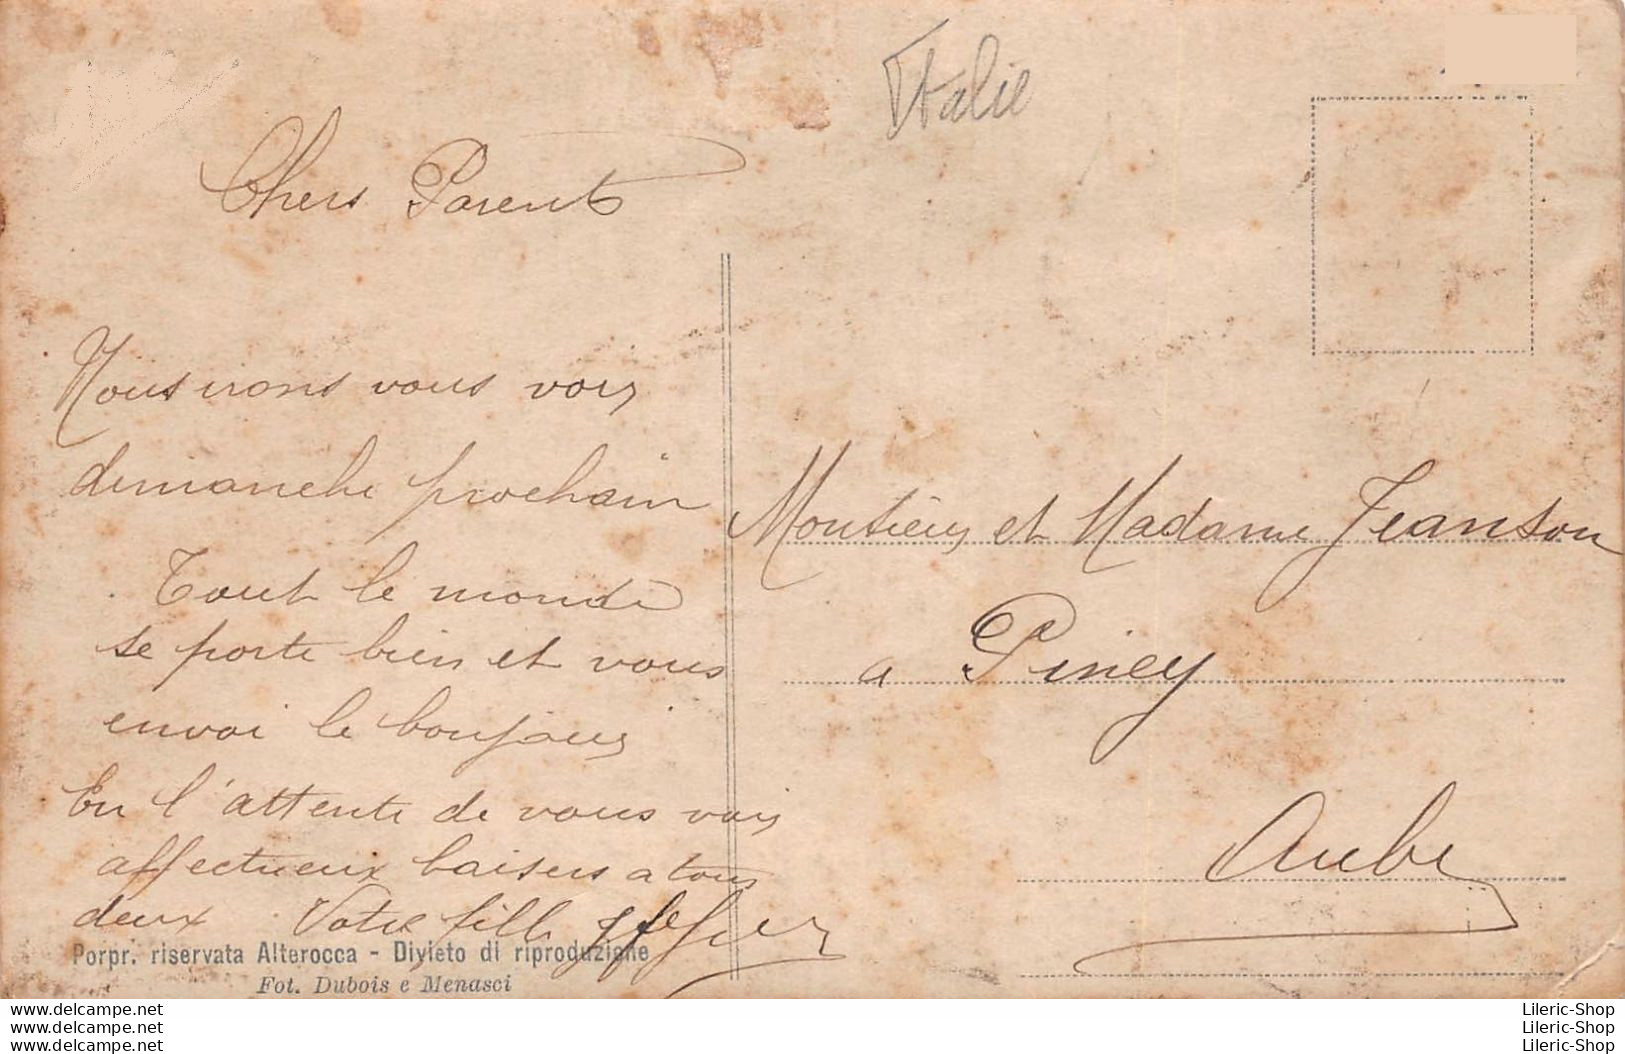 Italie
Chers Parents
Nous irons vous voir
dimanche prochain
Tout le monde
se porte bien et vous
envoi le bonjour
En l'attente de vous voir
affectueux baisers a tous
deux Votre fille
Porpr. riservata Alterocca - Divieto di riproduzione
Fot. Dubois e Menasci
Monsieur et Madame Jeanson
a Piney
Aube
www.delcampe.net
www.delcampe.net
www.delcampe.net
Lileric-Shop
Lileric-Shop
Lileric-Shop